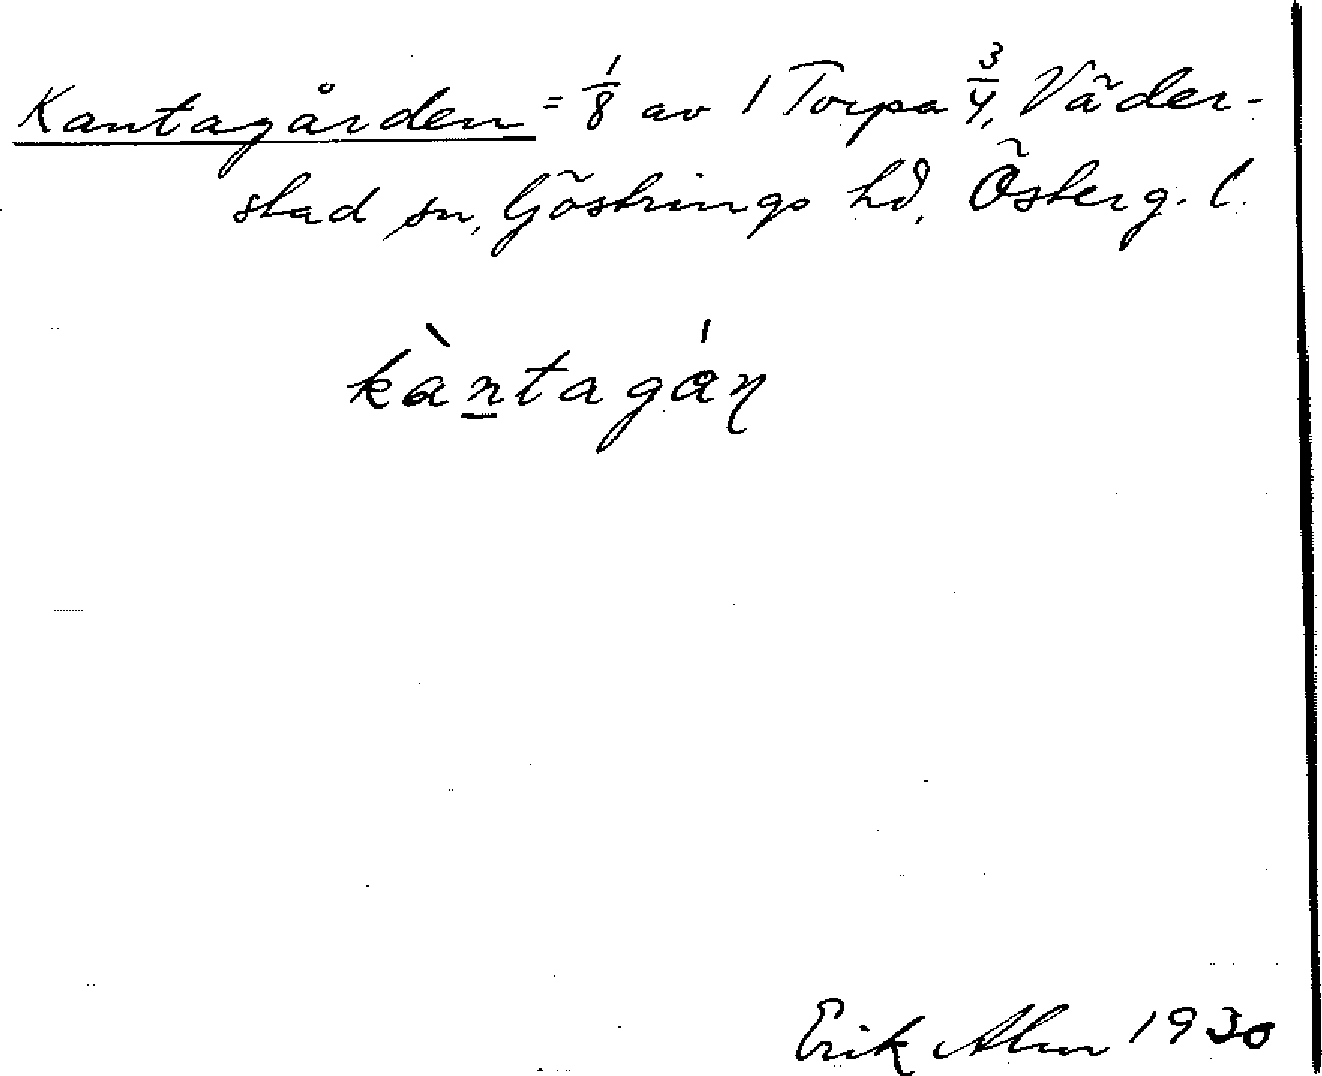 Kantagården = 1/8 av 1 Torpa 3/4, Väder-
stad sn, Göstrings hd, Österg. l.
kàn̲tagáɳ
Erik Alm 1930